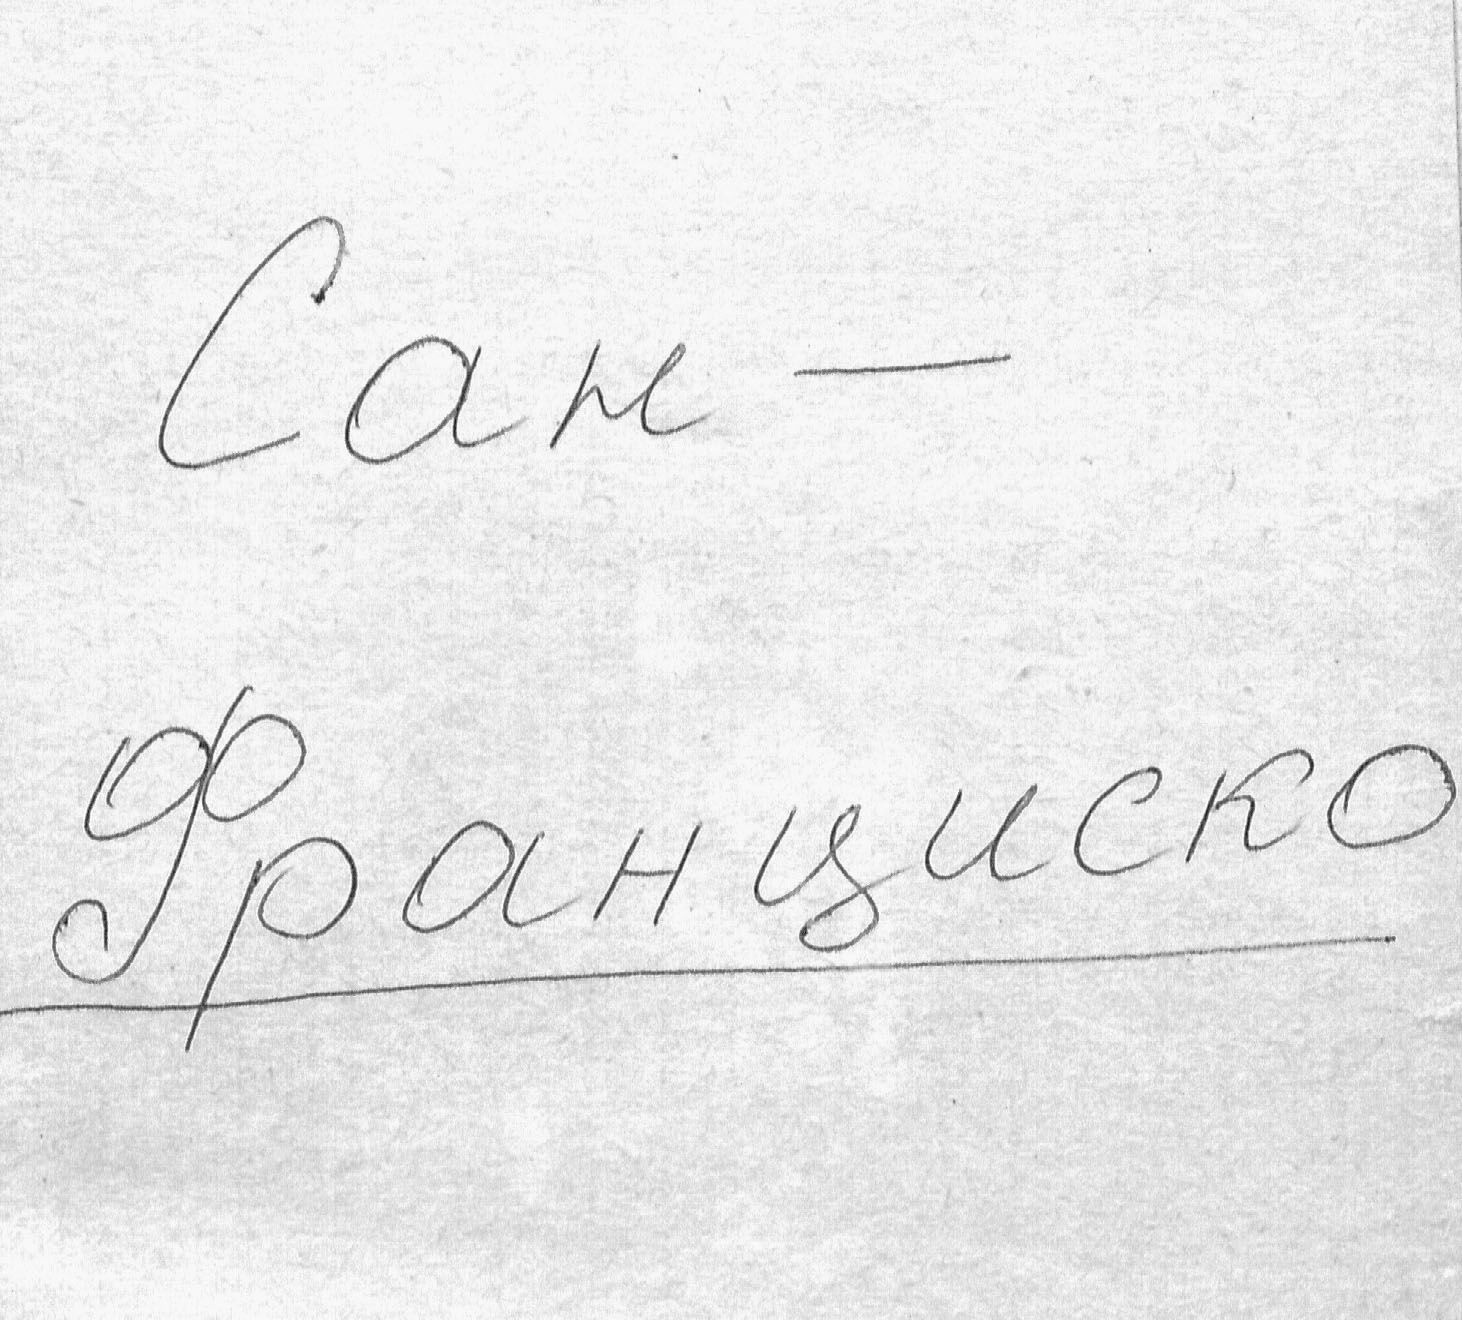 Сан-
Франциско